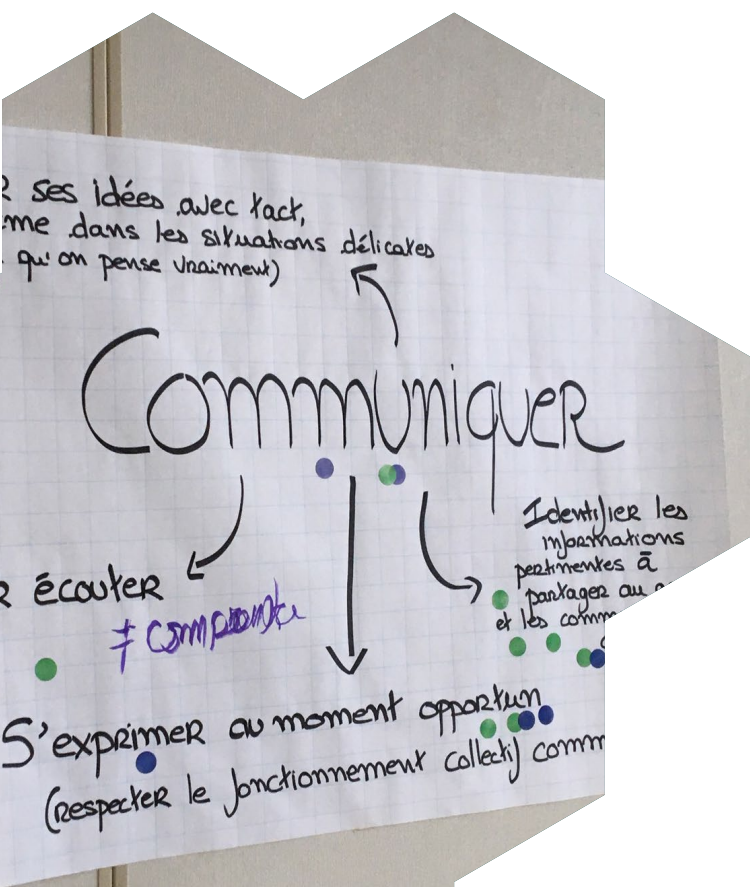 ses idées avec tact,
dans les situations délicates
qu'on pense vraiment)
Communiquer
Identifier les
informations
pertinentes à
partager au
et les
écouter
≠
S'exprimer au moment opportun
(respecter le fonctionnement collectif